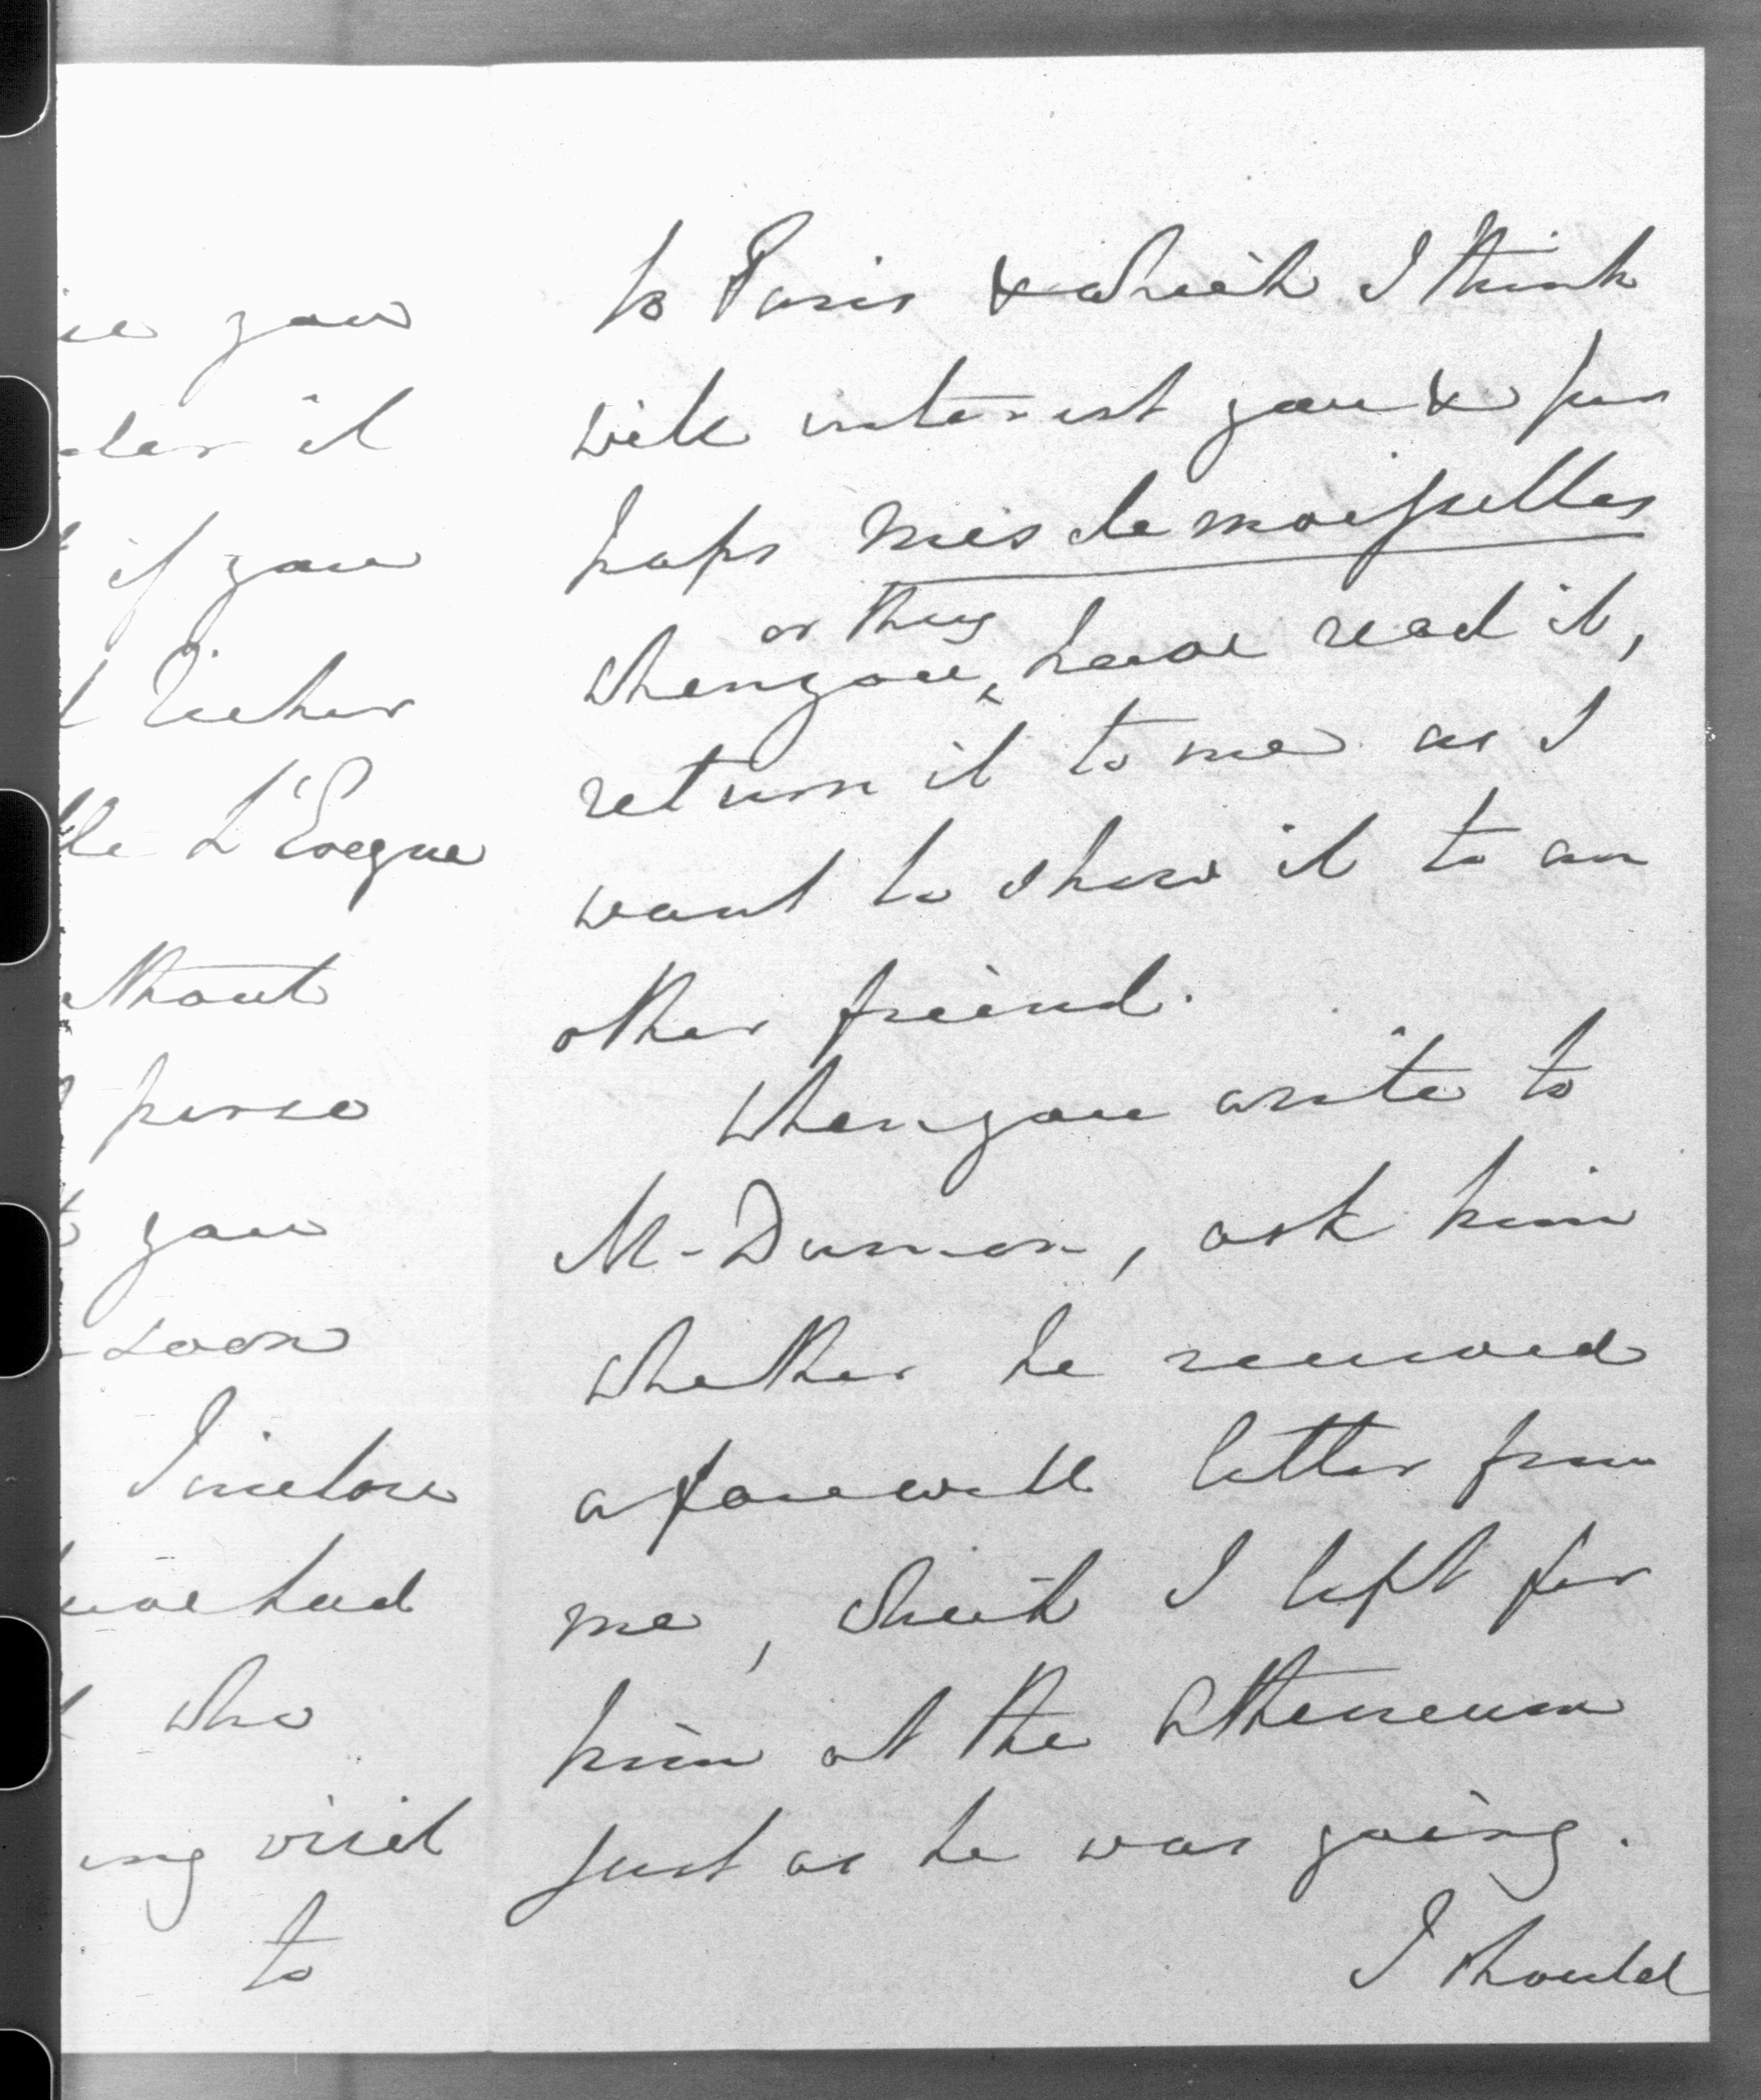 you
it
if you
L'Evegne
thout
you
soon
I inclose
have had
who
ing visit
to
to Paris & which I think
will interest you & per
haps mes demoiselles
or they
when you ‸ have read it,
return it to me as I
want to show it to an
other friend.
When you write to
M. Dumon, ask him
whether he received
a farewell letter from
me, which I left for
him at the Atheneum
just as he was going.
I should